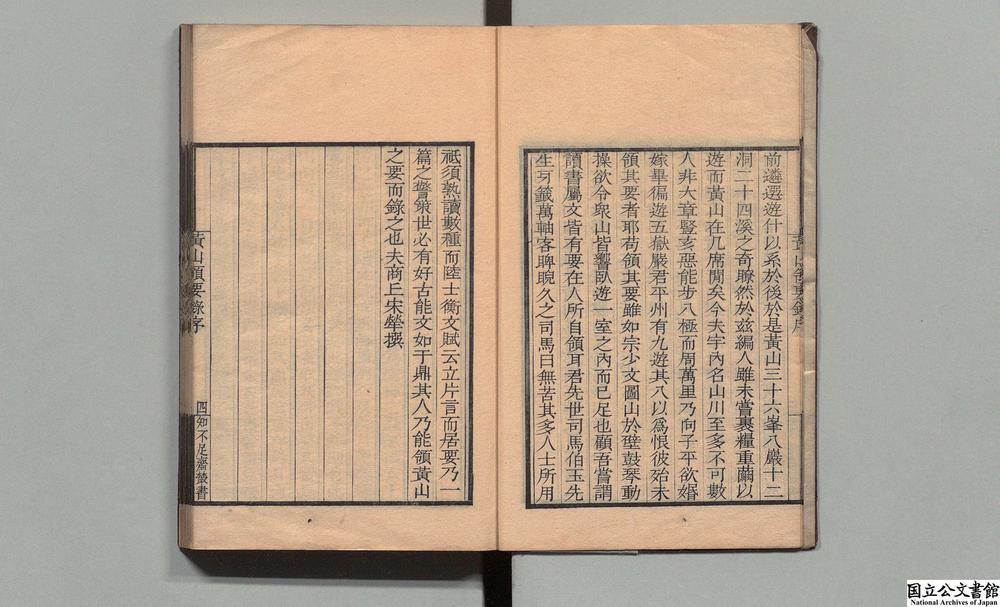 前遴選遊什以系於後於是黃山三十六峯八巖十二
洞二十四溪之奇瞭然於茲編人雖未嘗裹糧重繭以
遊而黃山在几席閒矣今夫宇內名山川至多不可數
人非大章豎亥惡能步八極而周萬里乃向子平欲婚
嫁畢徧遊五嶽嚴君平州有九遊其八以爲恨彼殆未
領其要者耶苟領其要雖如宗少文圖山於壁鼓琴動
操欲令衆山皆響臥遊一室之內而已足也顧吾嘗謂
讀書屬文皆有要在人所自領耳君先世司馬伯玉先
生牙籤萬軸客睥睨久之司馬曰無苦其多人士所用
祗須熟讀數種而陸士衡文賦云立片言而居要乃一
篇之警策世必有好古能文如于鼎其人乃能領黃山
之要而錄之也夫商丘宋犖撰
黃山領要錄序
四知不足齋叢書
国立公文書館
National Archives of Japan